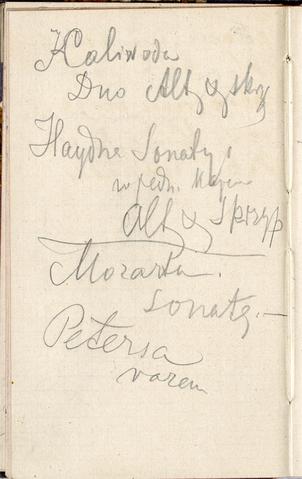 Kaliwoda
Duo Alt y skrz
Haydna Sonaty
w jedn.
Alt y Skrzyp
Mozarta.
Sonatę.—
Petersa
razem